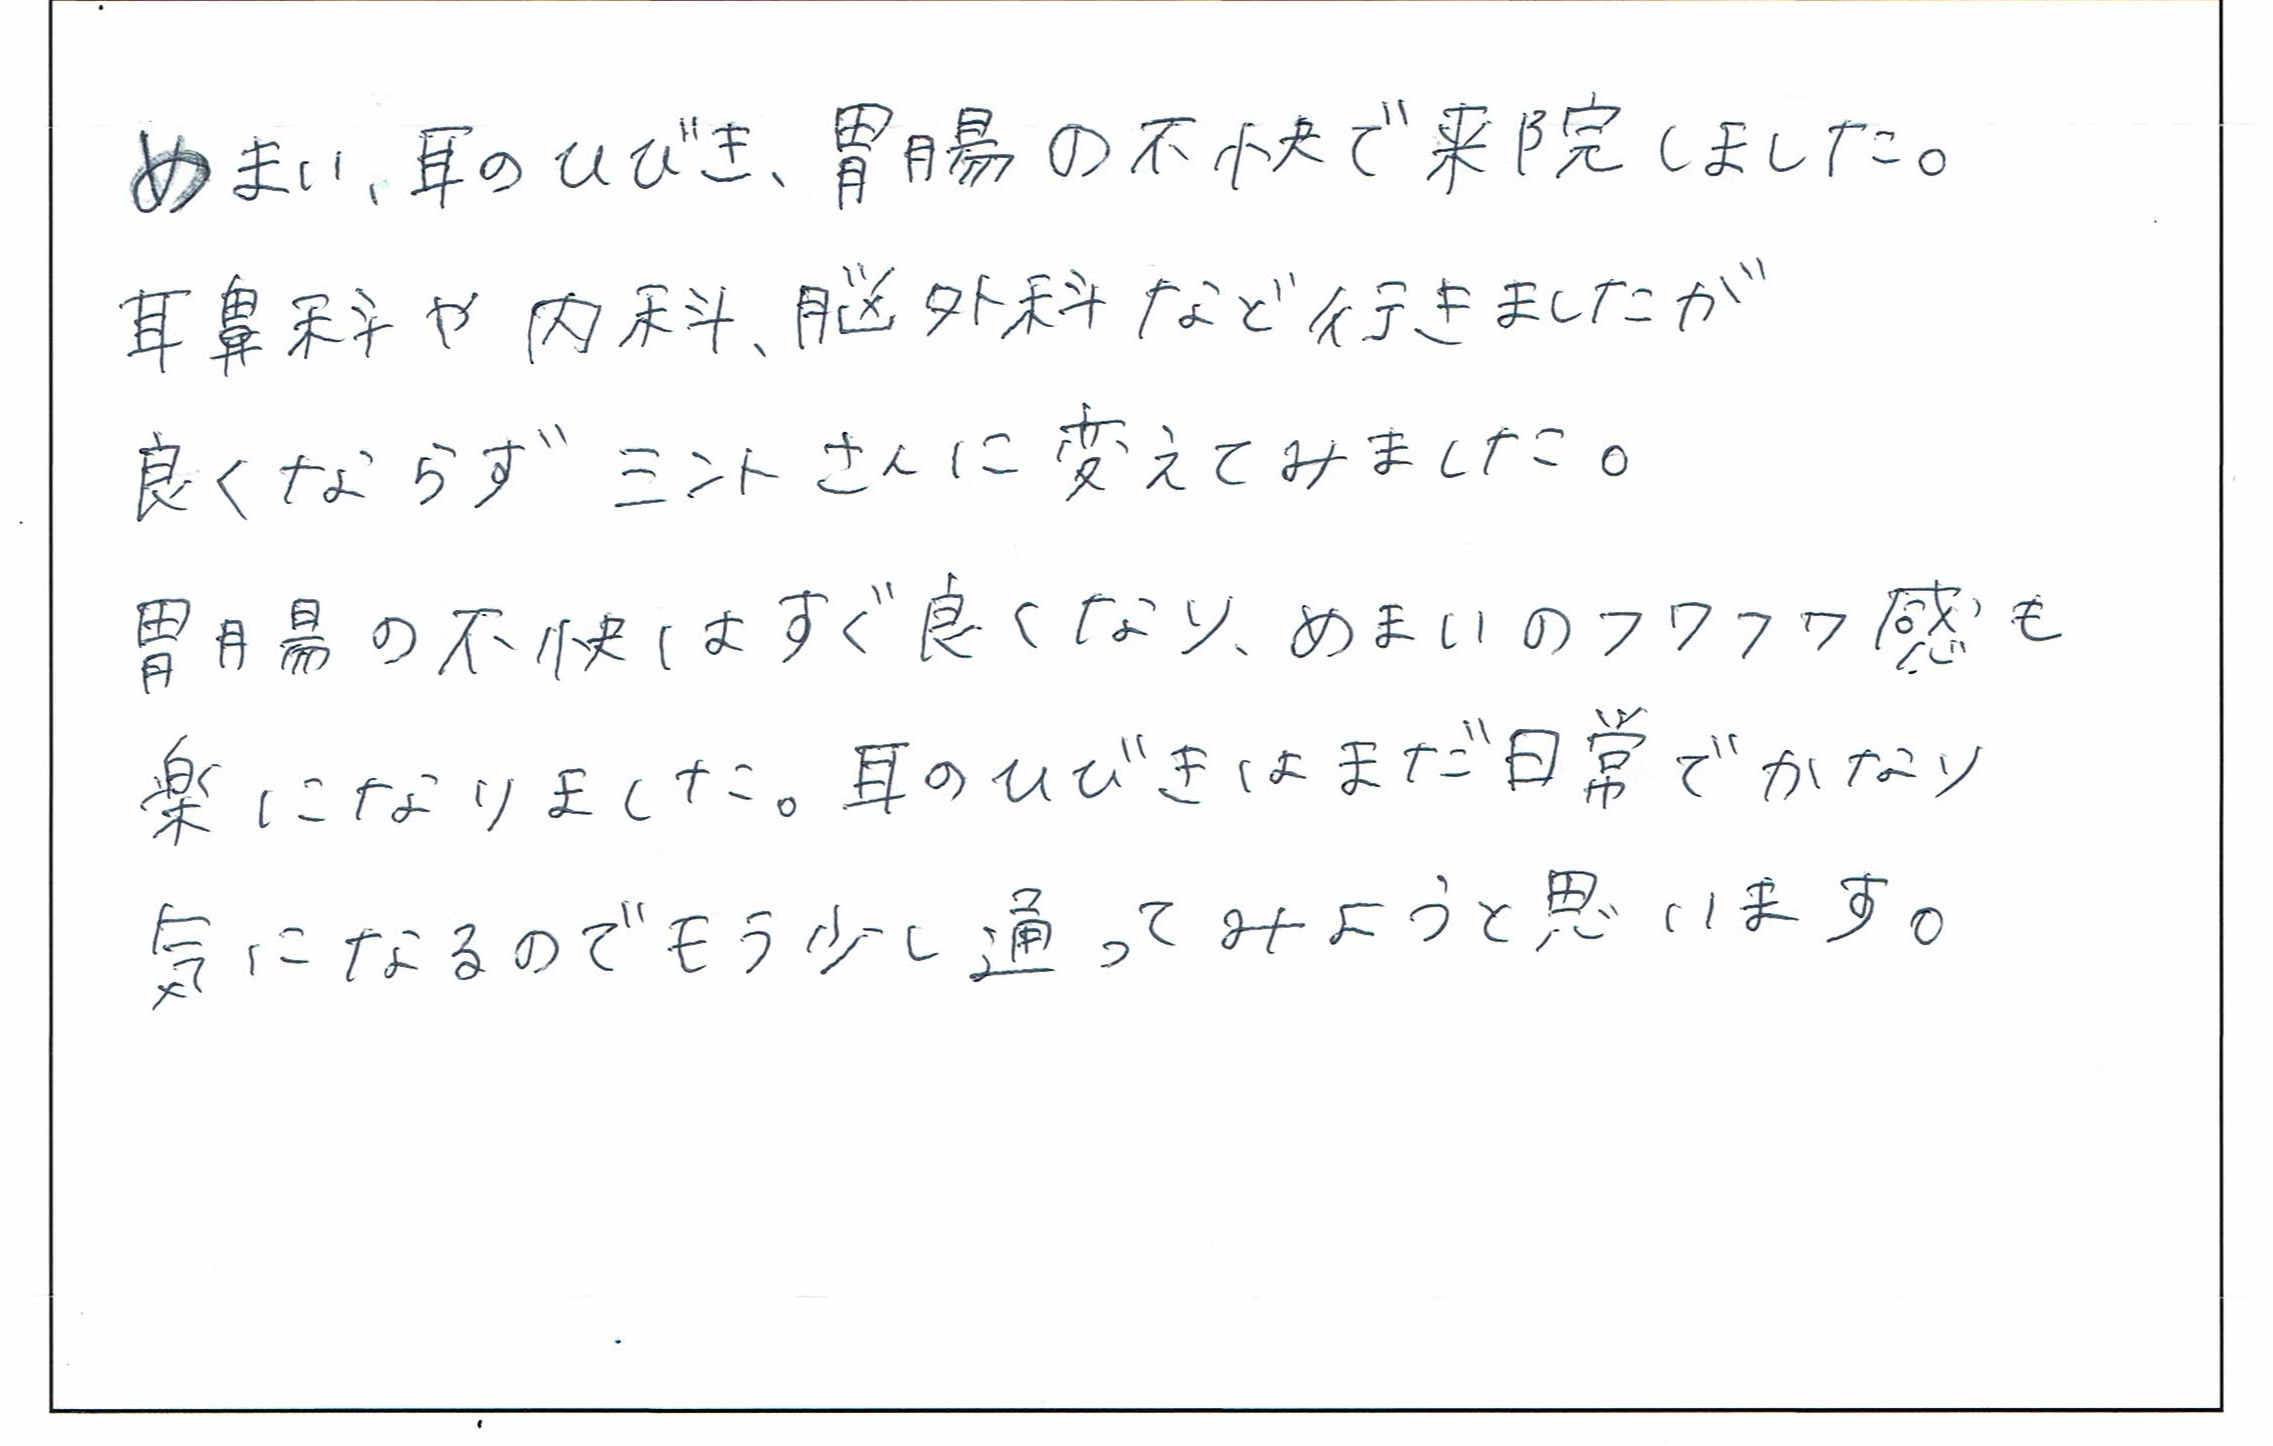 めまい、耳のひびき、胃腸の不快で来院しました。
耳鼻科や内科、脳外科など行きましたが
良くならずミントさんに変えてみました。
胃腸の不快はすぐ良くなり、めまいのフワフワ感も
楽になりました。耳のひびきはまだ日常でかなり
気になるのでもう少し通ってみようと思います。